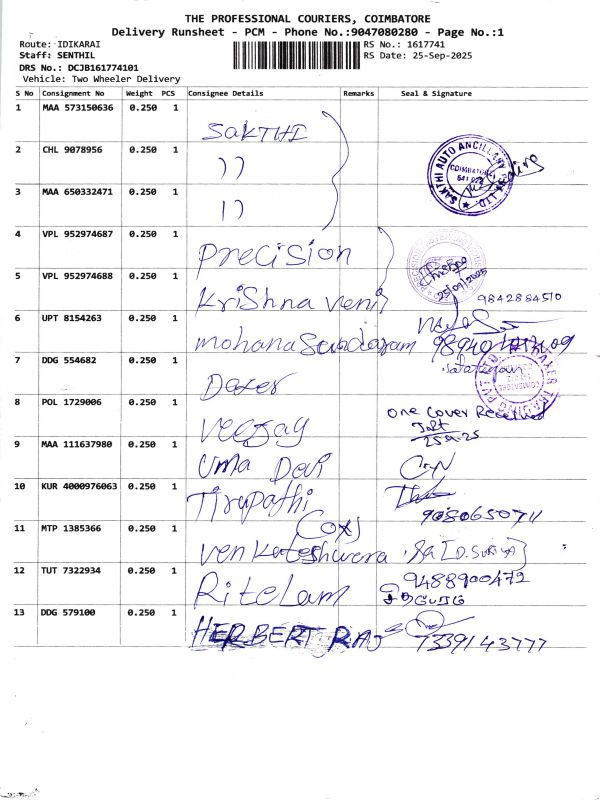 THE PROFESSIONAL COURIERS, COIMBATORE
Delivery Runsheet - PCM - Phone No.:9047080280 - Page No.:1
Route: IDIKARAI
RS No.: 1617741
Staff: SENTHIL
RS Date: 25-Sep-2025
DRS No.: DCJB161774101
Vehicle: Two Wheeler Delivery
S No Consignment No Weight PCS Consignee Details Remarks Seal & Signature
1 MAA 573150636 0.250 1 SAKTHI
2 CHL 9078956 0.250 1 ))
SAKTHI AUTO ANCILLARY
COIMBATORE
3 MAA 650332471 0.250 1 ))
4 VPL 952974687 0.250 1 Precision
25/09/2025
5 VPL 952974688 0.250 1 Krishna veni 9842884510
6 UPT 8154263 0.250 1
7 DDG 554682 0.250 1
8 POL 1729006 0.250 1 Veejay One Cover Received
25.9.25
9 MAA 111637980 0.250 1 Uma Devi
10 KUR 4000976063 0.250 1 Tirupathi
9080650711
11 MTP 1385366 0.250 1
12 TUT 7322934 0.250 1 9488900472
13 DDG 579100 0.250 1 HERBERT RAJ 7339143777